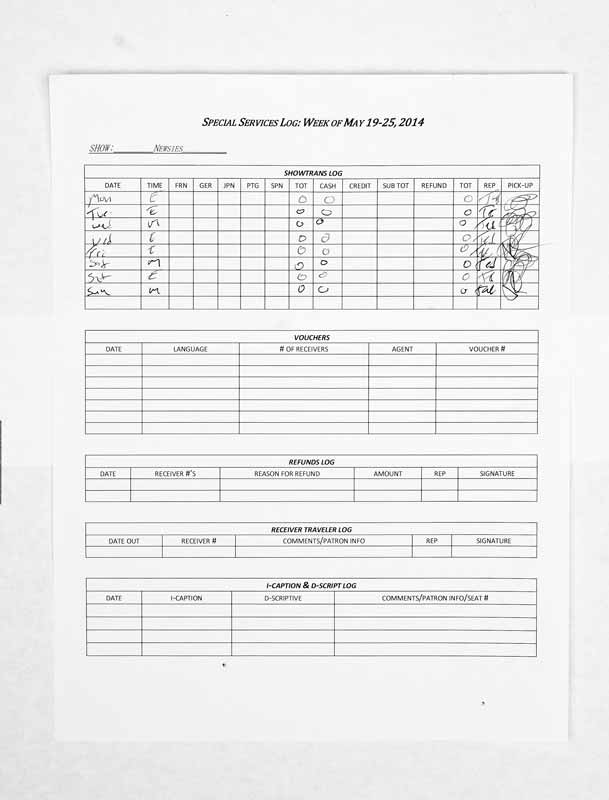 SPECIAL SERVICES LOG: WEEK OF MAY 19-25, 2014
SHOW: NEWSIES
SHOWTRANS LOG
DATE TIME FRN GER JPN PTG SPN TOT CASH CREDIT SUB TOT REFUND TOT REP PICK-UP
Mon E 0 0 0
Tue E 0 0 0 Te
Wed M 0 0 0 Ted
Wed E 0 0 0 Te
Fri E 0 0 0
Sat M 0 0 0 Ted
Sat E 0 0 0
Sun M 0 0 0
VOUCHERS
DATE LANGUAGE # OF RECEIVERS AGENT VOUCHER #
REFUNDS LOG
DATE RECEIVER #'S REASON FOR REFUND AMOUNT REP SIGNATURE
RECEIVER TRAVELER LOG
DATE OUT RECEIVER # COMMENTS/PATRON INFO REP SIGNATURE
I-CAPTION & D-SCRIPT LOG
DATE I-CAPTION D-SCRIPTIVE COMMENTS/PATRON INFO/SEAT #